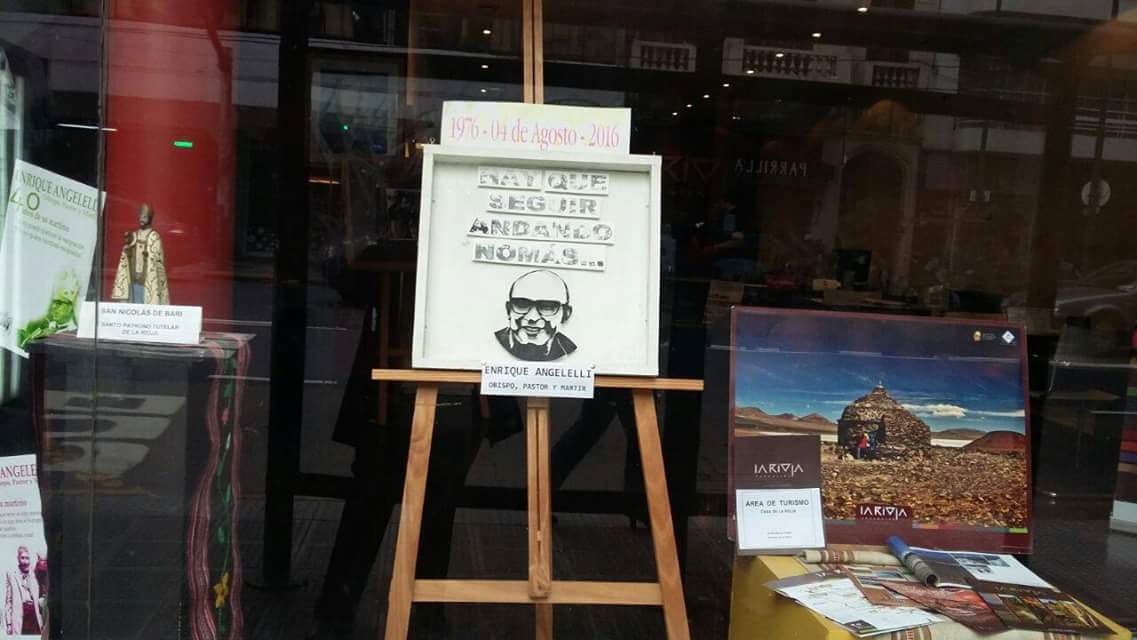 1976 - 04 de Agosto - 2016
HAY QUE
SEGUIR
ANDANDO
NOMÁS...
ENRIQUE ANGELELLI
OBISPO, PASTOR Y MARTIR
ENRIQUE ANGELELLI
40
Obispo, Pastor y
SAN NICOLÁS DE BARI
SANTO PATRONO TUTELAR
DE LA RIOJA
ANGELE
PARRILLA
LA RIOJA
ÁREA DE TURISMO
CASA DE LA RIOJA
LA RIOJA